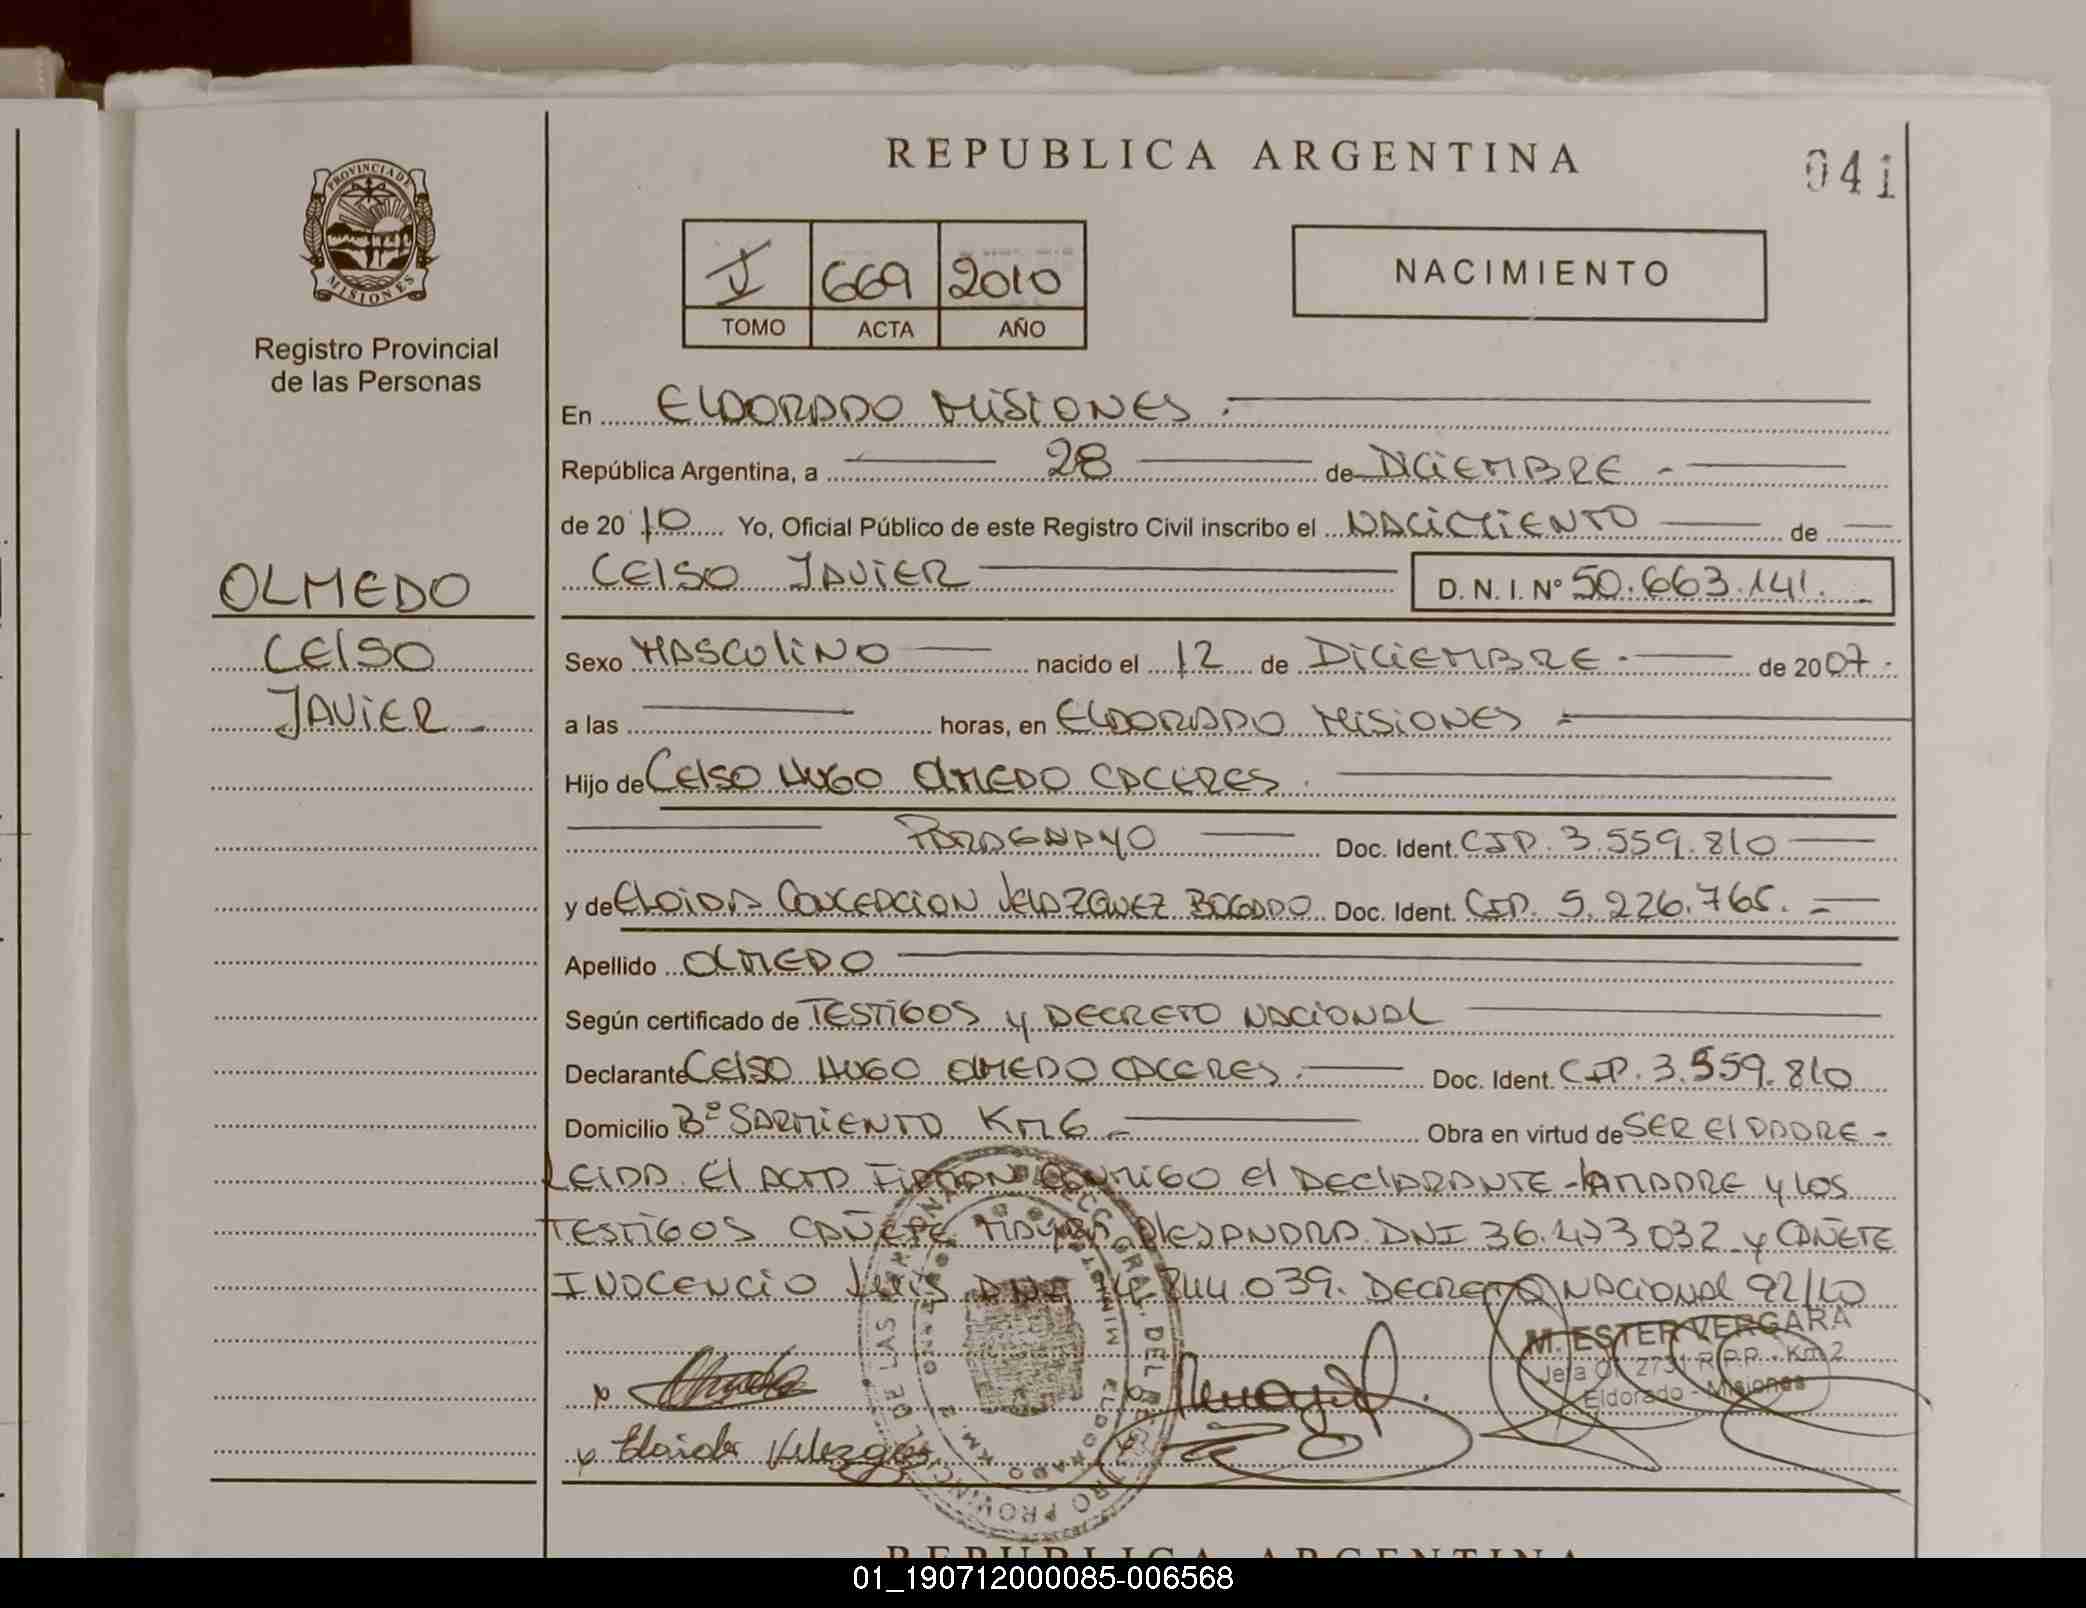 REPUBLICA ARGENTINA
041
PROVINCIA DE
MISIONES
Registro Provincial
de las Personas
I 669 2010
TOMO ACTA AÑO
NACIMIENTO
En ELDORADO MISIONES.
República Argentina, a 28 de DICIEMBRE -
de 2010 Yo, Oficial Público de este Registro Civil inscribo el NACIMIENTO de
CELSO JAVIER D. N. I. Nº 50.663.141.
OLMEDO
CELSO
JAVIER
Sexo MASCULINO nacido el 12 de DICIEMBRE de 2007.
a las horas, en ELDORADO MISIONES
Hijo de CELSO HUGO OLMEDO CACERES.
PARAGUAYO Doc. Ident. CIP. 3.559.810
y de ELOIDA CONCEPCION VELAZQUEZ BOGADO Doc. Ident. CIP. 5.226.765.
Apellido OLMEDO
Según certificado de TESTIGOS y DECRETO NACIONAL
Declarante CELSO HUGO OLMEDO CACERES. Doc. Ident. CIP. 3.559.810
Domicilio Bº SARMIENTO Km 6 Obra en virtud de SER El PADRE -
LEIDA El ACTA FIRMAN CONMIGO El DECLARANTE - LA MADRE y LOS
TESTIGOS CAÑETE ALEJANDRA DNI 36.473.032 y CAÑETE
INOCENCIO LUIS DNI 039. DECRETO NACIONAL 92/10
M. ESTER VERGARA
Jefa Of. 2731 R.P.P. - Km 2
Eldorado - Misiones
Eloida Velazquez
REPUBLICA ARGENTINA
01_190712000085-006568